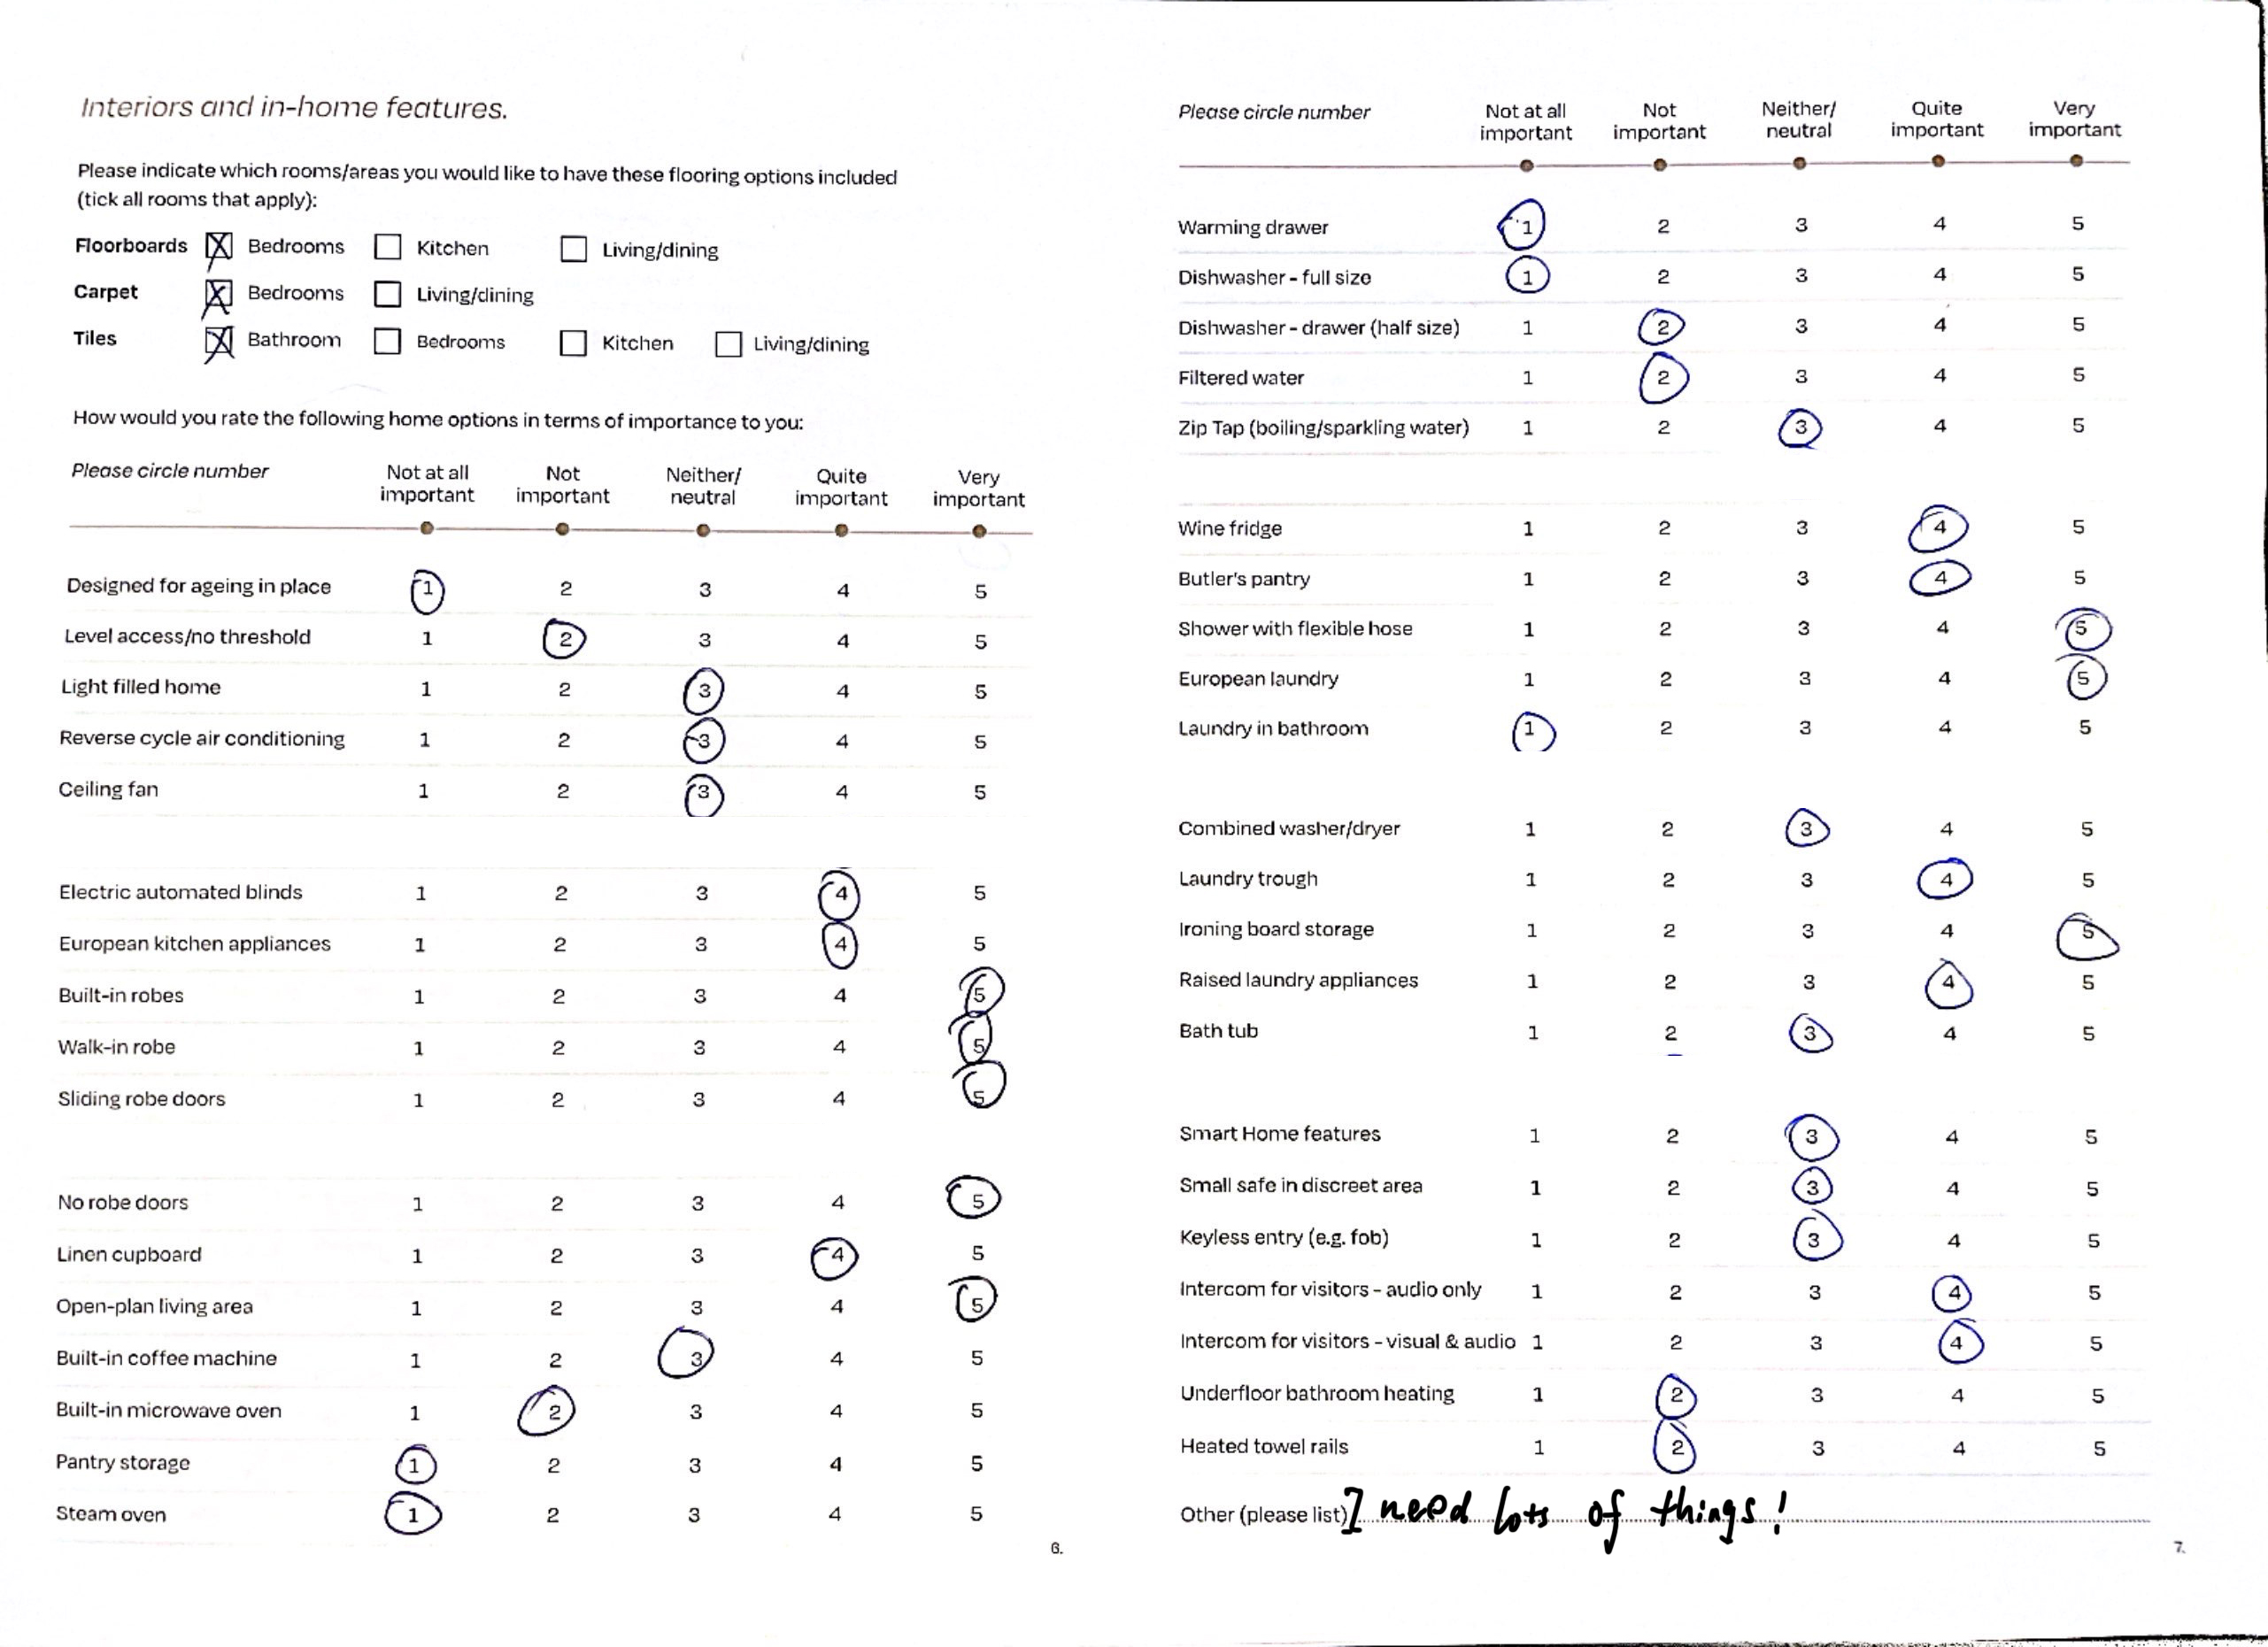 Interiors and in-home features.
Please indicate which rooms/areas you would like to have these flooring options included
(tick all rooms that apply):
Floorboards Bedrooms Kitchen Living/dining
Carpet Bedrooms Living/dining
Tiles Bathroom Bedrooms Kitchen Living/dining
How would you rate the following home options in terms of importance to you:
Please circle number Not at all important Not important Neither/neutral Quite important Very important
Designed for ageing in place 1 2 3 4 5
Level access/no threshold 1 2 3 4 5
Light filled home 1 2 3 4 5
Reverse cycle air conditioning 1 2 3 4 5
Ceiling fan 1 2 3 4 5
Electric automated blinds 1 2 3 4 5
European kitchen appliances 1 2 3 4 5
Built-in robes 1 2 3 4 5
Walk-in robe 1 2 3 4 5
Sliding robe doors 1 2 3 4 5
No robe doors 1 2 3 4 5
Linen cupboard 1 2 3 4 5
Open-plan living area 1 2 3 4 5
Built-in coffee machine 1 2 3 4 5
Built-in microwave oven 1 2 3 4 5
Pantry storage 1 2 3 4 5
Steam oven 1 2 3 4 5
6.
Please circle number Not at all important Not important Neither/neutral Quite important Very important
Warming drawer 1 2 3 4 5
Dishwasher - full size 1 2 3 4 5
Dishwasher - drawer (half size) 1 2 3 4 5
Filtered water 1 2 3 4 5
Zip Tap (boiling/sparkling water) 1 2 3 4 5
Wine fridge 1 2 3 4 5
Butler's pantry 1 2 3 4 5
Shower with flexible hose 1 2 3 4 5
European laundry 1 2 3 4 5
Laundry in bathroom 1 2 3 4 5
Combined washer/dryer 1 2 3 4 5
Laundry trough 1 2 3 4 5
Ironing board storage 1 2 3 4 5
Raised laundry appliances 1 2 3 4 5
Bath tub 1 2 3 4 5
Smart Home features 1 2 3 4 5
Small safe in discreet area 1 2 3 4 5
Keyless entry (e.g. fob) 1 2 3 4 5
Intercom for visitors - audio only 1 2 3 4 5
Intercom for visitors - visual & audio 1 2 3 4 5
Underfloor bathroom heating 1 2 3 4 5
Heated towel rails 1 2 3 4 5
Other (please list) I need lots of things!
7.